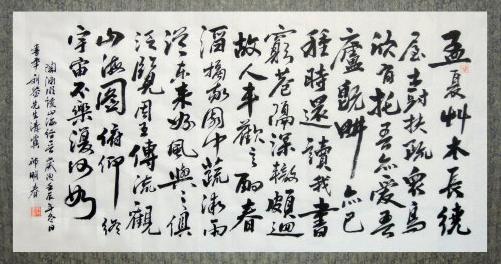 孟夏艸木長繞
屋樹扶疏衆鳥
欣有托吾亦愛吾
廬既畊亦已
種時還讀我書
窮巷隔深轍頗迴
故人車歡言酌春
酒摘我園中蔬微雨
從東來好風與之俱
泛覽周王傳流觀
山海圖俯仰終
宇宙不樂復何如
陶淵明讀山海經 壬辰年冬日
先生